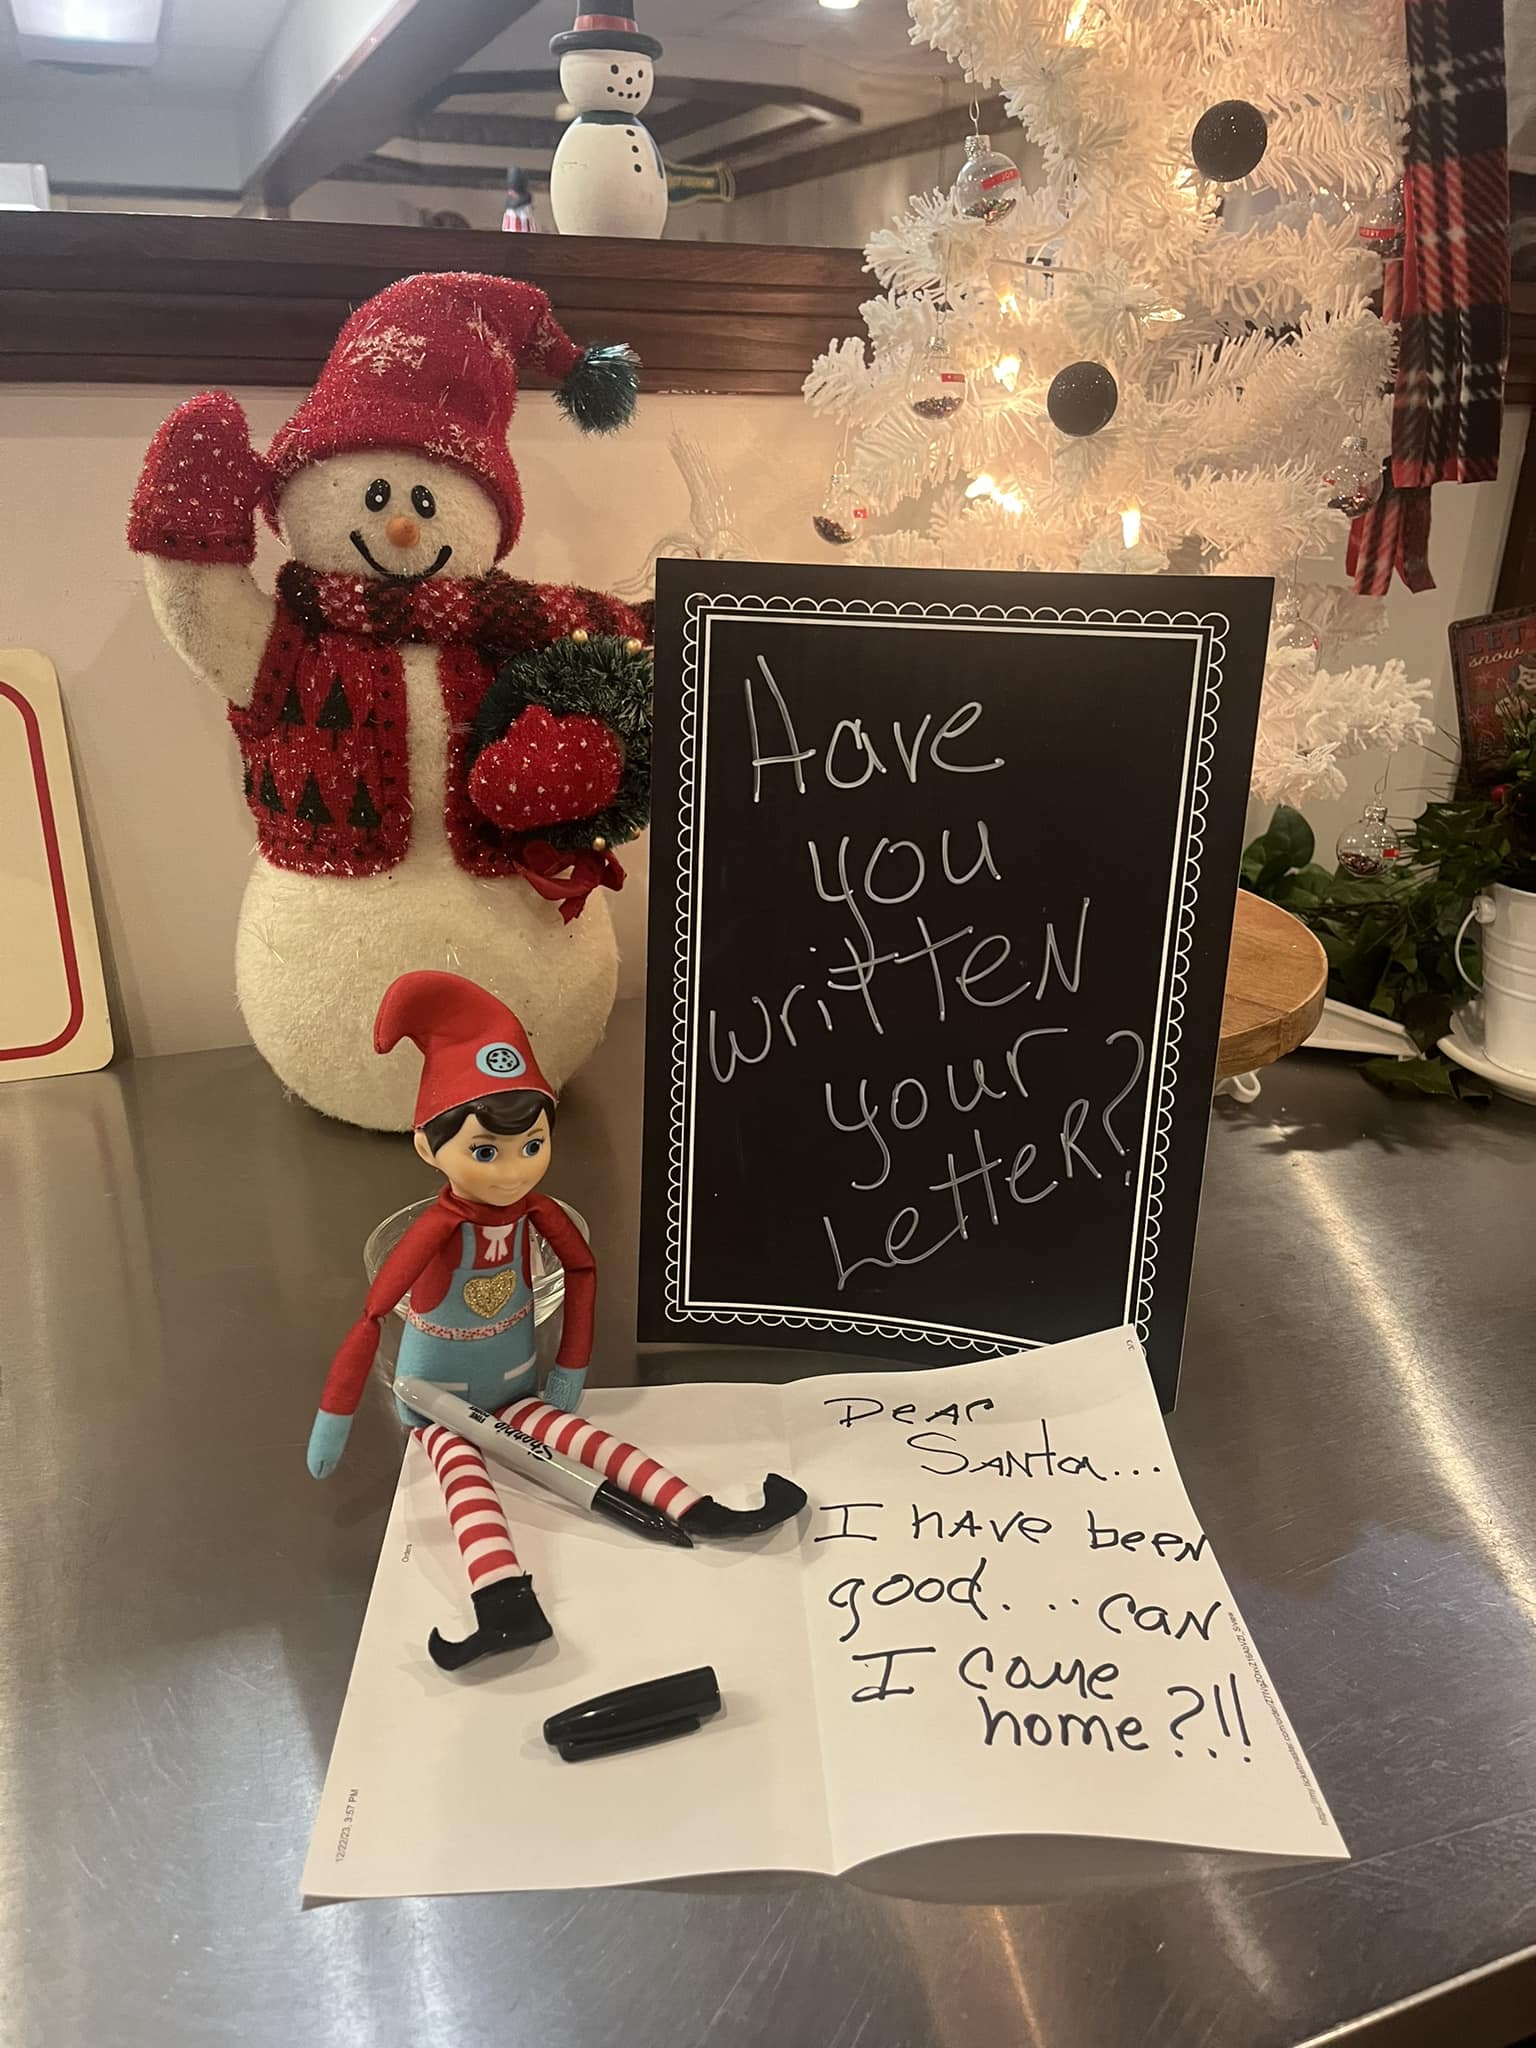 Have
you
written
your
Letter?
Dear
Santa...
I have been
good... can
I come
home?!!
Sharpie
FINE POINT
Orders
12/22/23, 3:57 PM
JOY
LET
snow